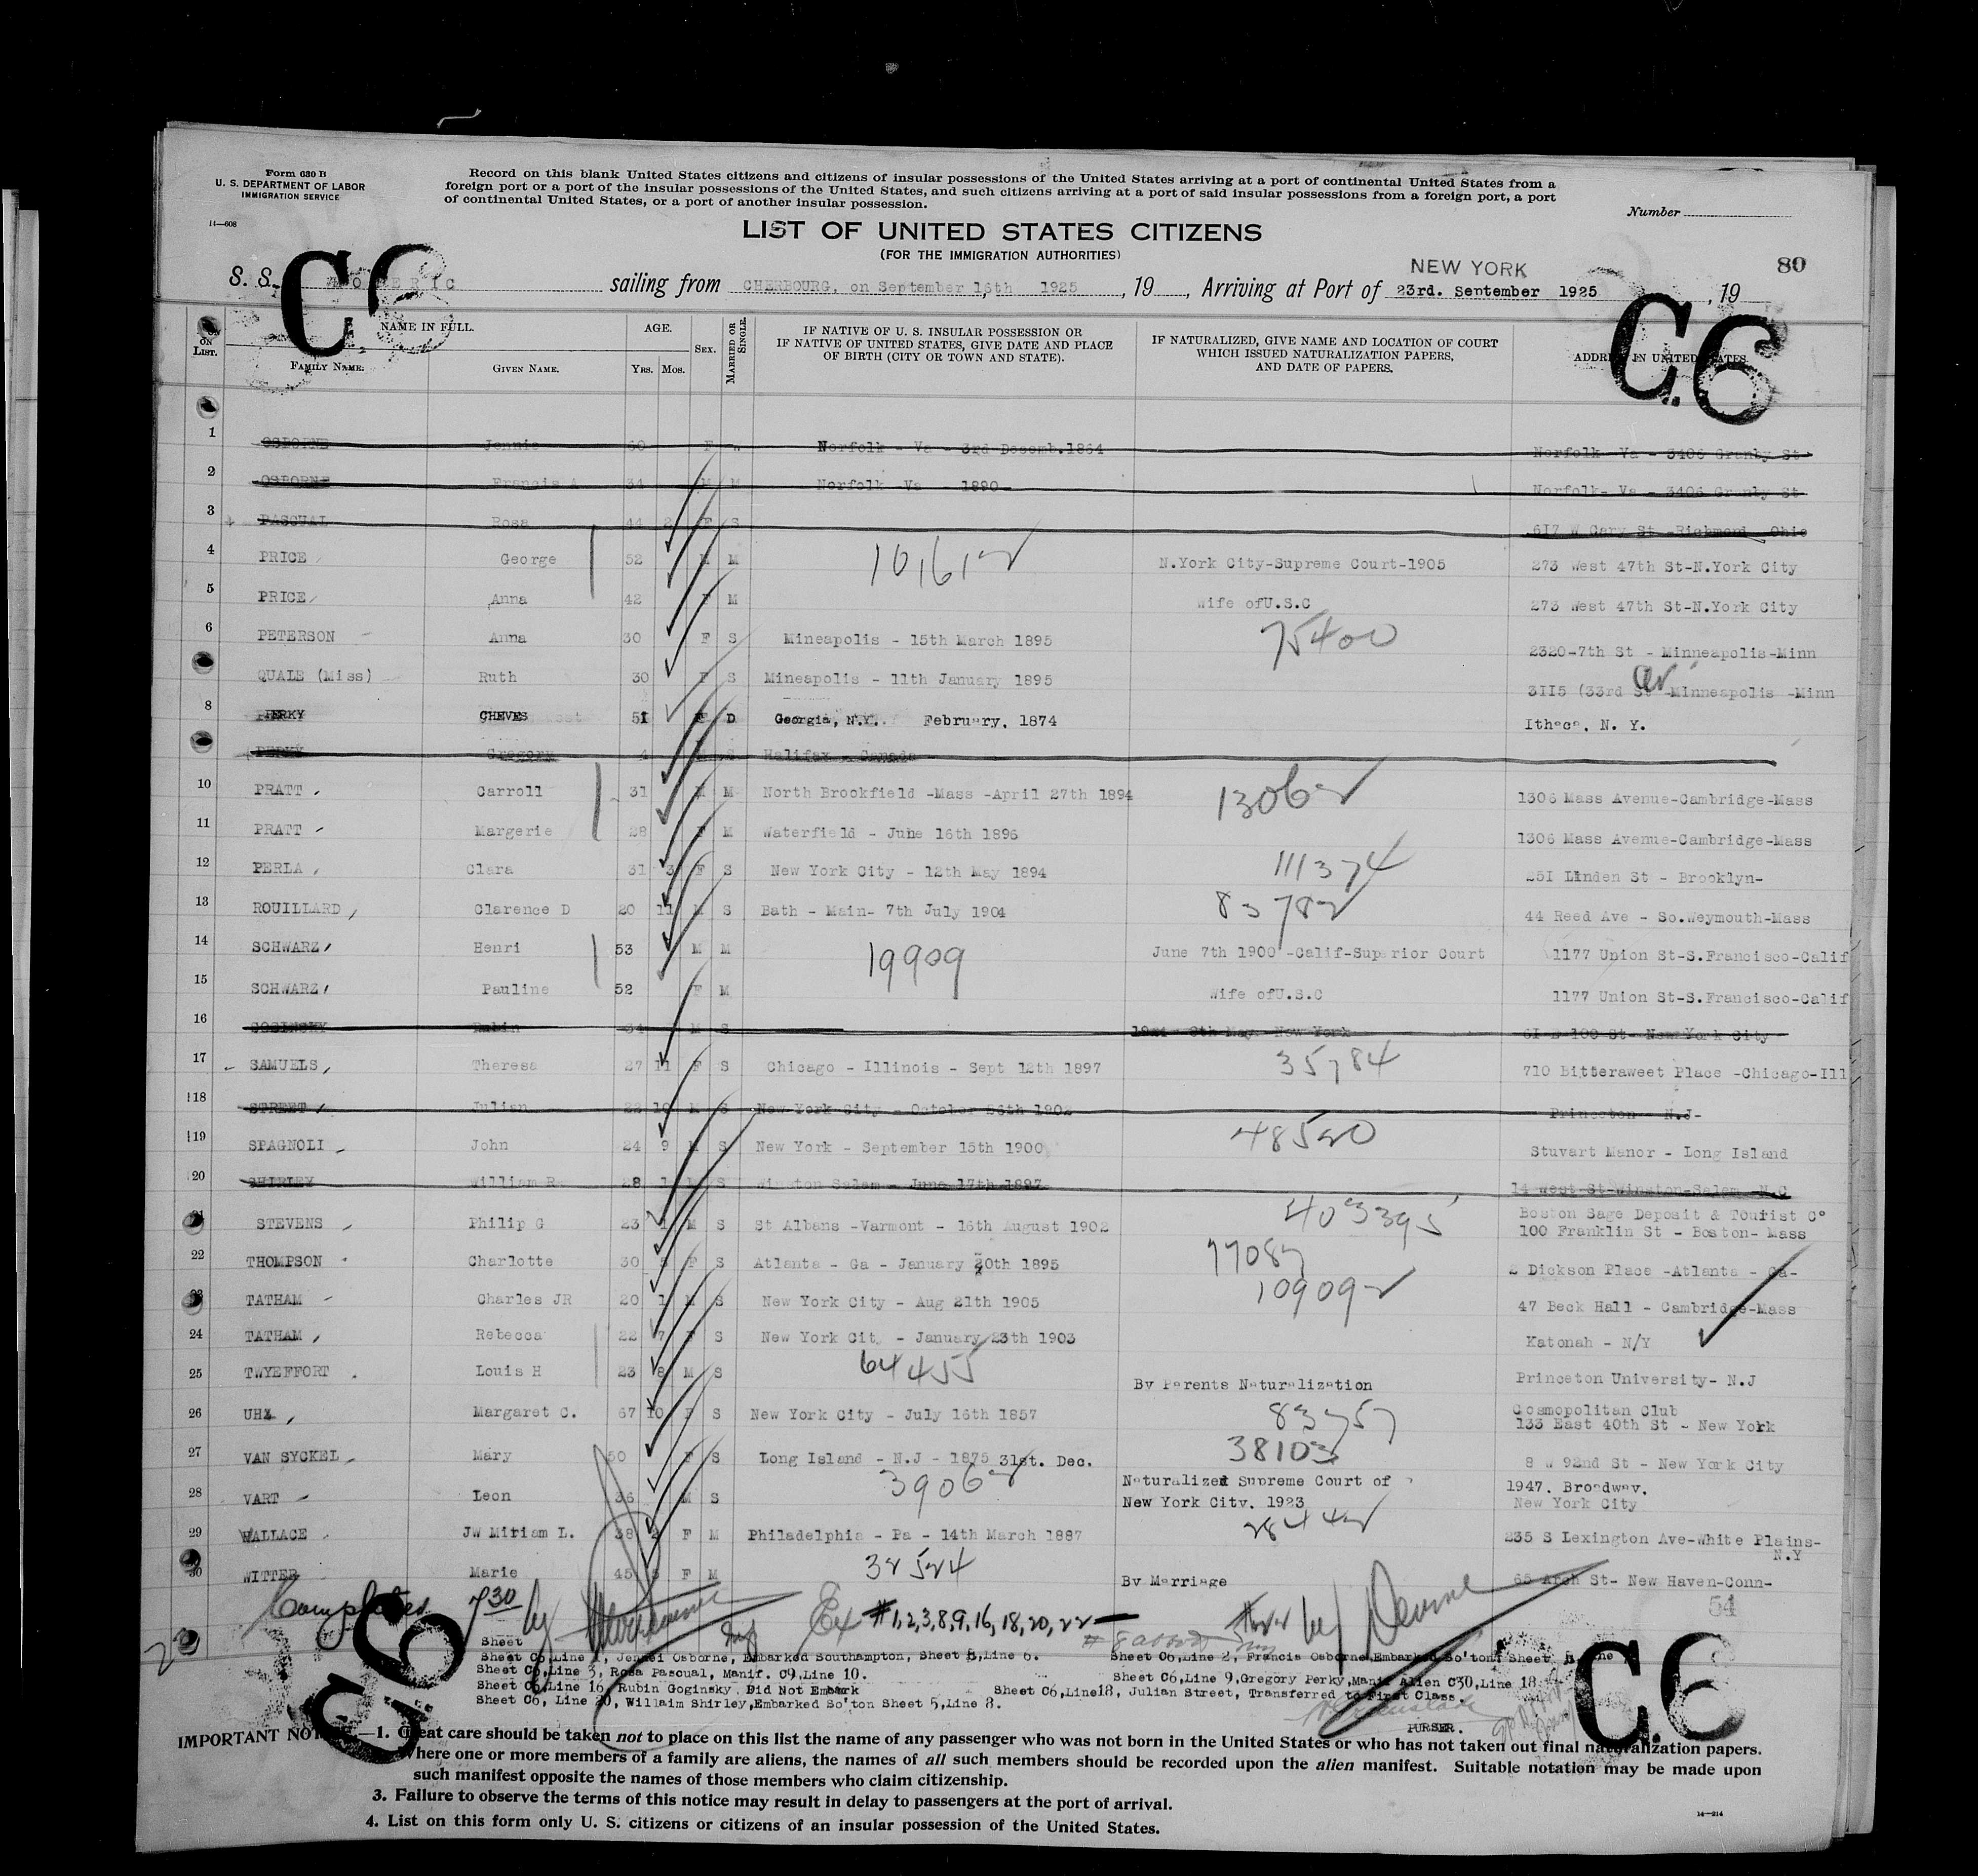 Form 630 B
U. S. DEPARTMENT OF LABOR
IMMIGRATION SERVICE
14—608
Record on this blank United States citizens and citizens of insular possessions of the United States arriving at a port of continental United States from a
foreign port or a port of the insular possessions of the United States, and such citizens arriving at a port of said insular possessions from a foreign port, a port
of continental United States, or a port of another insular possession.
Number
LIST OF UNITED STATES CITIZENS
(FOR THE IMMIGRATION AUTHORITIES)
80
C6
C6
S. S. sailing from CHERBOURG, on September 16th 1925, 19 , Arriving at Port of NEW YORK 23rd. September 1925 , 19
ON LIST.
NAME IN FULL.
FAMILY NAME.
GIVEN NAME.
AGE.
YRS. MOS.
SEX.
MARRIED OR SINGLE.
IF NATIVE OF U. S. INSULAR POSSESSION OR
IF NATIVE OF UNITED STATES, GIVE DATE AND PLACE
OF BIRTH (CITY OR TOWN AND STATE).
IF NATURALIZED, GIVE NAME AND LOCATION OF COURT
WHICH ISSUED NATURALIZATION PAPERS,
AND DATE OF PAPERS.
ADDRESS IN UNITED STATES.
1 OSBORNE Jennie 60 F Norfolk - Va - 3rd Decemb.1864 Norfolk Va - 3406 Granby St
2 OSBORNE Francis A 34 M M Norfolk Va - 1890 Norfolk- Va - 3406 Granby St
3 PASCUAL Rosa 44 F S 617 W Cary St -Richmond Ohio
4 PRICE George 52 M M N.York City-Supreme Court-1905 273 West 47th St-N.York City
5 PRICE Anna 42 F M Wife ofU.S.C 273 West 47th St-N.York City
6 PETERSON Anna 30 F S Mineapolis - 15th March 1895 75400 2320-7th St - Minneapolis-Minn
QUALE (Miss) Ruth 30 F S Mineapolis - 11th January 1895 3II5 (33rd St Minneapolis -Minn
8 PERKY CHEVES 51 F D Georgia, N.Y. February, 1874 Ithaca, N. Y.
PERKY Gregory 4 M S Halifax - Canada
10 PRATT Carroll 31 M M North Brookfield -Mass -April 27th 1894 13062 1306 Mass Avenue-Cambridge-Mass
11 PRATT Margerie 28 F M Waterfield - June 16th 1896 1306 Mass Avenue-Cambridge-Mass
12 PERLA Clara 31 3 F S New York City - 12th May 1894 111374 25I Linden St - Brooklyn-
13 ROUILLARD Clarence D 20 11 M S Bath - Main- 7th July 1904 83782 44 Reed Ave - So.Weymouth-Mass
14 SCHWARZ Henri 53 M M 19909 June 7th 1900 -Calif-Superior Court 1177 Union St-S.Francisco-Calif
15 SCHWARZ Pauline 52 F M Wife ofU.S.C 1177 Union St-S.Francisco-Calif
16 Rubin M S 8th May New York 6I E 100 St- New York City
17 SAMUELS Theresa 27 11 F S Chicago - Illinois - Sept 12th 1897 35784 710 Bitteraweet Place -Chicago-Ill
18 STREET Julian 22 10 M S New York City - October 26th 1902 Princeton - N.J-
19 SPAGNOLI John 24 9 M S New York - September 15th 1900 48520 Stuvart Manor - Long Island
20 SHIRLEY William R 28 1 M S Winston Salem - June 17th 1897 14 west St Winston-Salem N.C
21 STEVENS Philip G 23 1 M S St Albans -Varmont - 16th August 1902 403395 Boston Sage Deposit & Tourist Co
100 Franklin St - Boston- Mass
22 THOMPSON Charlotte 30 F S Atlanta - Ga - January 20th 1895 77087 2 Dickson Place -Atlanta - Ga-
23 TATHAM Charles JR 20 1 M S New York City - Aug 21th 1905 109092 47 Beck Hall - Cambridge-Mass
24 TATHAM Rebecca 22 7 F S New York Cit - January 23th 1903 Katonah - N/Y
25 TWYEFFORT Louis H 23 8 M S 64455 By Parents Naturalization Princeton University- N.J
26 Margaret C. 67 10 F S New York City - July 16th 1857 83757 Cosmopolitan Club
133 East 40th St - New York
27 VAN SYCKEL Mary 50 F S Long Island - N.J - 1875 31st. Dec. 38103 8 W 92nd St - New York City
28 VART Leon 36 M S 39062 Naturalized Supreme Court of
New York City. 1923 1947. Broadway.
New York City
29 WALLACE JW Miriam L. 38 F M Philadelphia - Pa - 14th March 1887 28442 235 S Lexington Ave-White Plains-
N.Y
30 WITTER Marie 45 F M 32524 By Marriage 65 Arch St- New Haven-Conn-
54
Completed 7.30 by Ex #1,2,3,8,9,16,18,20,22 by Devine
Sheet
Sheet C6,Line 1, Jennei Osborne, Embarked Southampton, Sheet 5,Line 6. Sheet C6,Line 2, Francis Osborne,Embarked So'ton, Sheet
Sheet C6,Line 3, Rosa Pascual, Manif. C9,Line 10. Sheet C6,Line 9,Gregory Perky,Manif Alien C30,Line 18
Sheet C6,Line 16, Rubin Goginsky, Did Not Embark Sheet C6,Line18, Julian Street, Transferred to First Class.
Sheet C6, Line 20, Willaim Shirley,Embarked So'ton Sheet 5,Line 8.
PURSER.
C6
C6
IMPORTANT NOTICE.—1. Great care should be taken not to place on this list the name of any passenger who was not born in the United States or who has not taken out final naturalization papers.
Where one or more members of a family are aliens, the names of all such members should be recorded upon the alien manifest. Suitable notation may be made upon
such manifest opposite the names of those members who claim citizenship.
3. Failure to observe the terms of this notice may result in delay to passengers at the port of arrival.
4. List on this form only U. S. citizens or citizens of an insular possession of the United States.
14—214